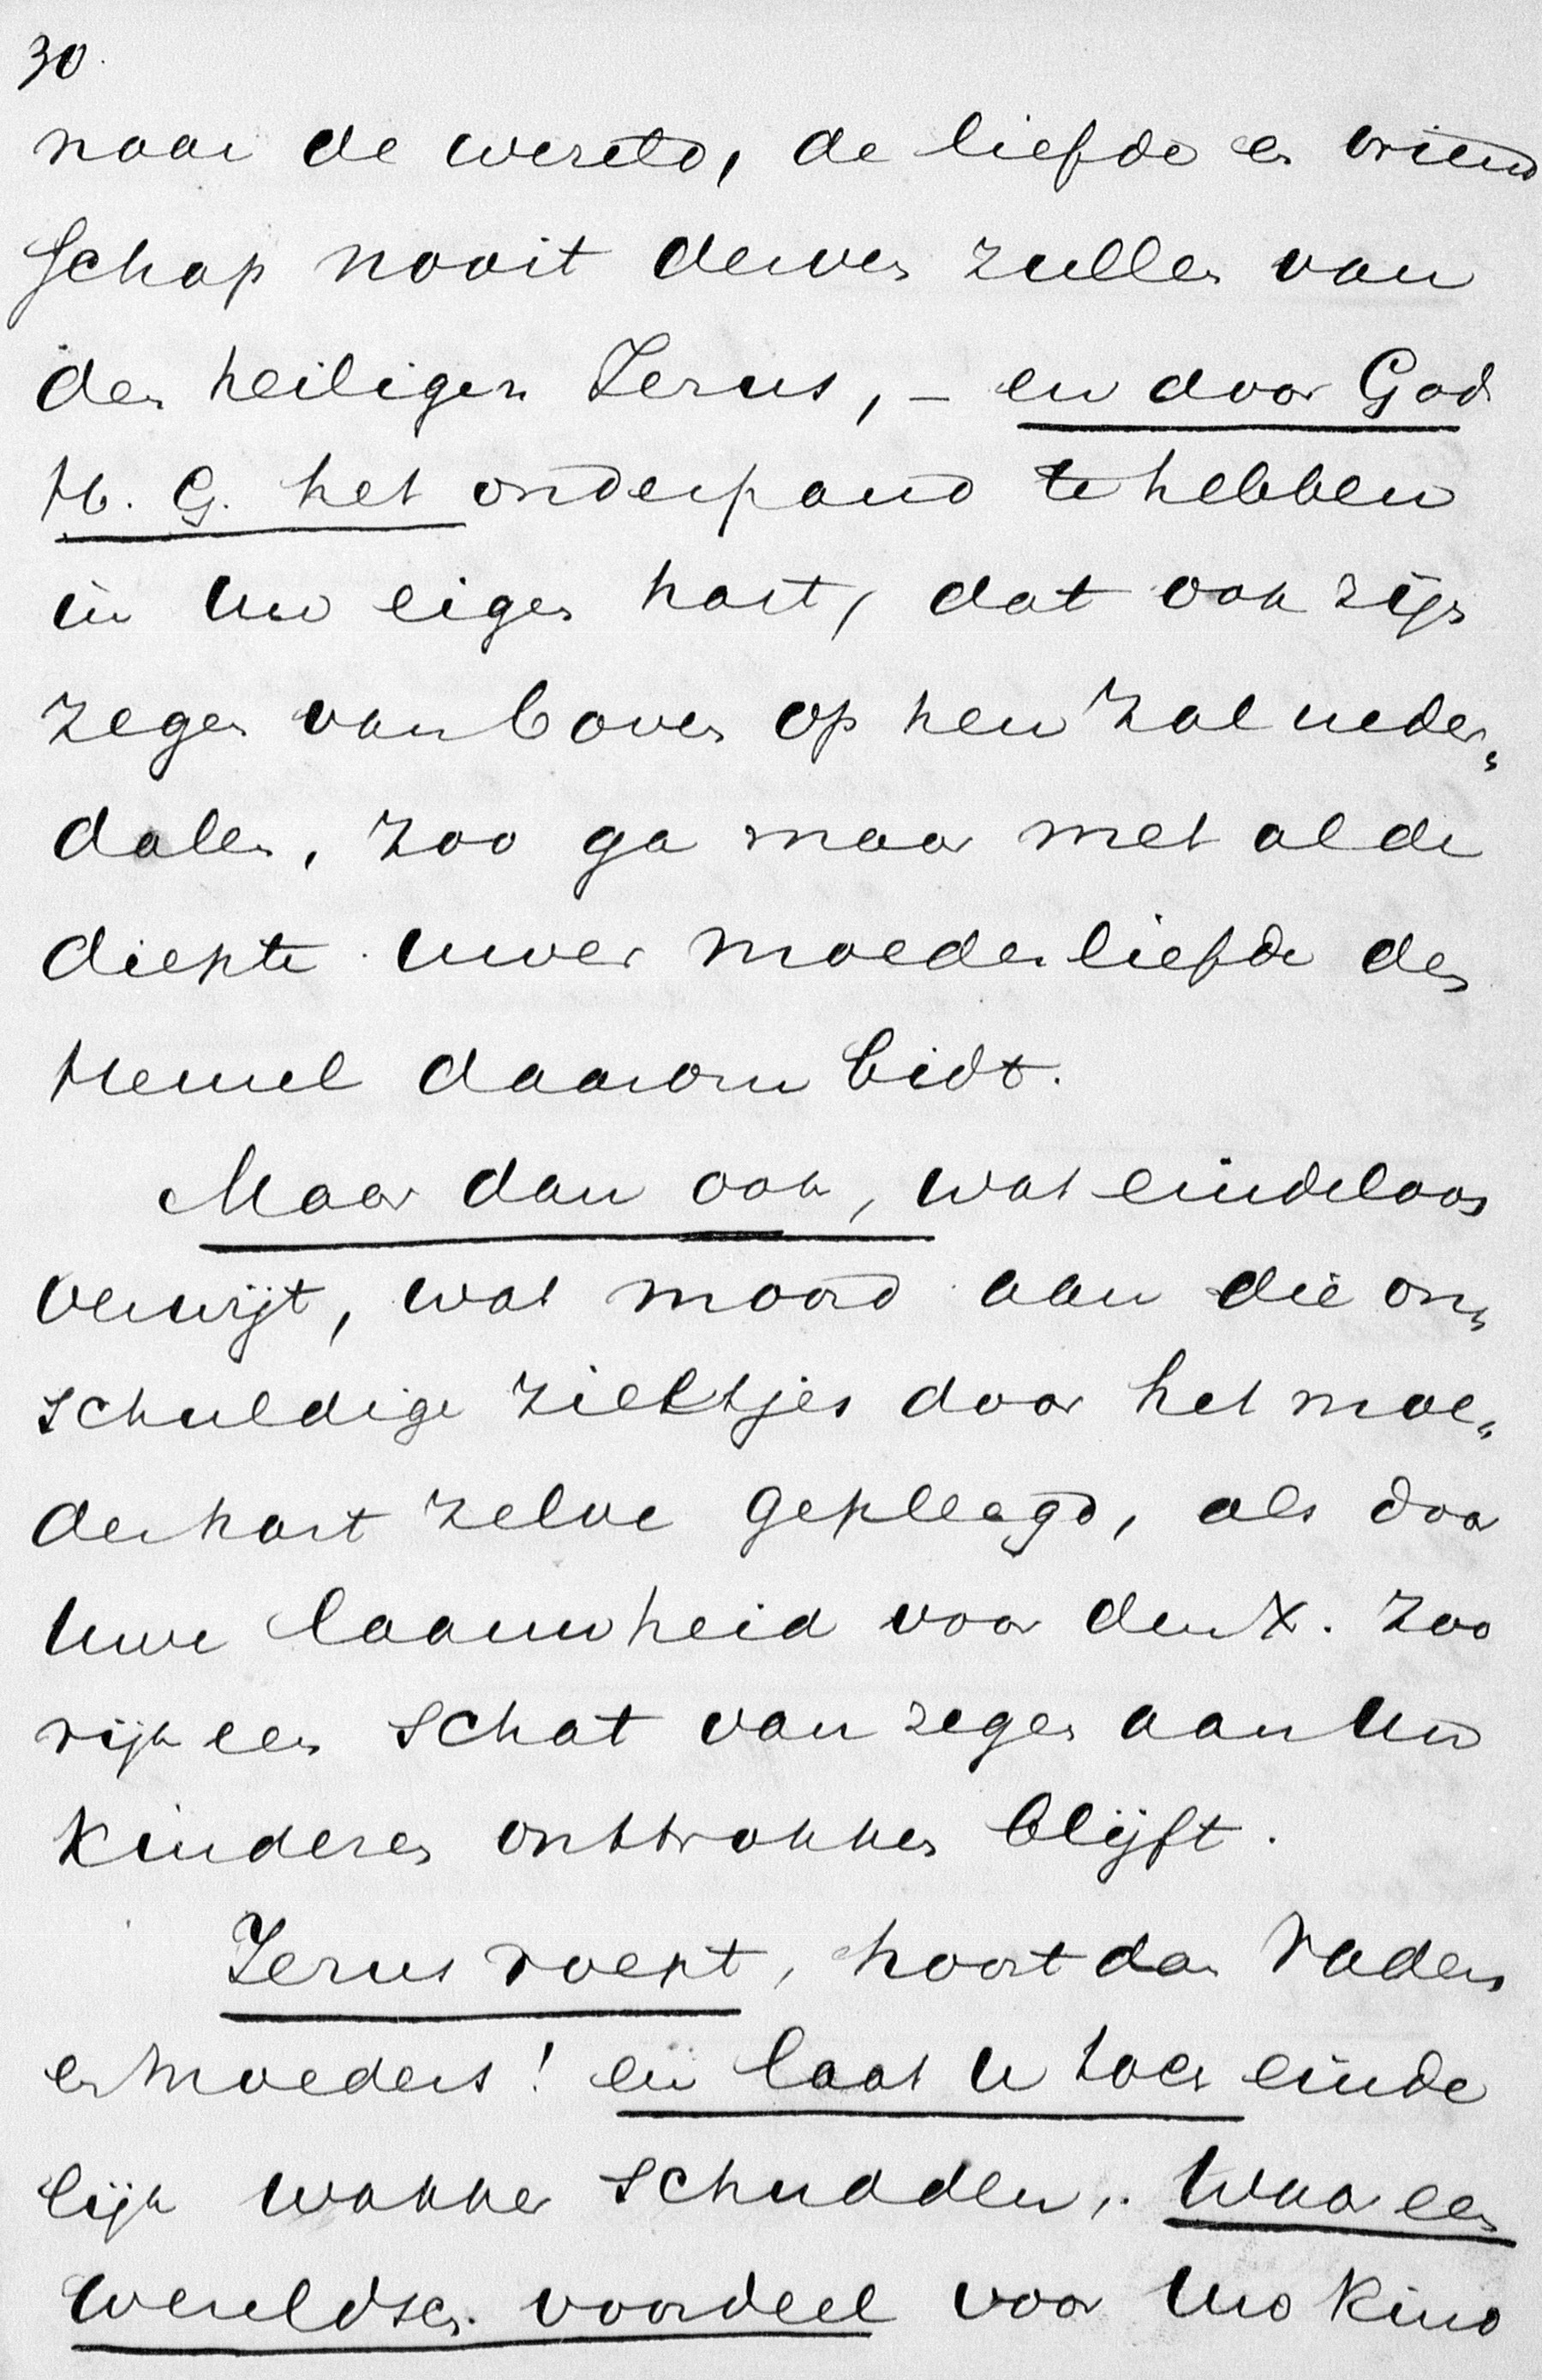 30.
naar de wereld, de liefde en vriend
schap nooit derven zullen van
den heiligen Jezus, – en door God
H. G. het onderpand te hebben
in Uw eigen hart, dat ook zijn
zegen van boven op hen zal neder„
dalen, zoo ga maar met al de
diepte uwer moederliefde den
Hemel daarom bidt.
Maar dan ook, wat eindeloos
verwijt, wat moord aan die on„
schuldige zieltjes door het moe„
derhart zelve gepleegd, als door
Uwe laauwheid voor den X. zoo
rijk een schat van zegen aan Uw
Kinderen onttrokken blijft.
Jezus roept, hoort dan Vaders
en Moeders! en laat U toch einde
lijk wakker schudden,. Waar een
wereldsch voordeel voor Uw Kind